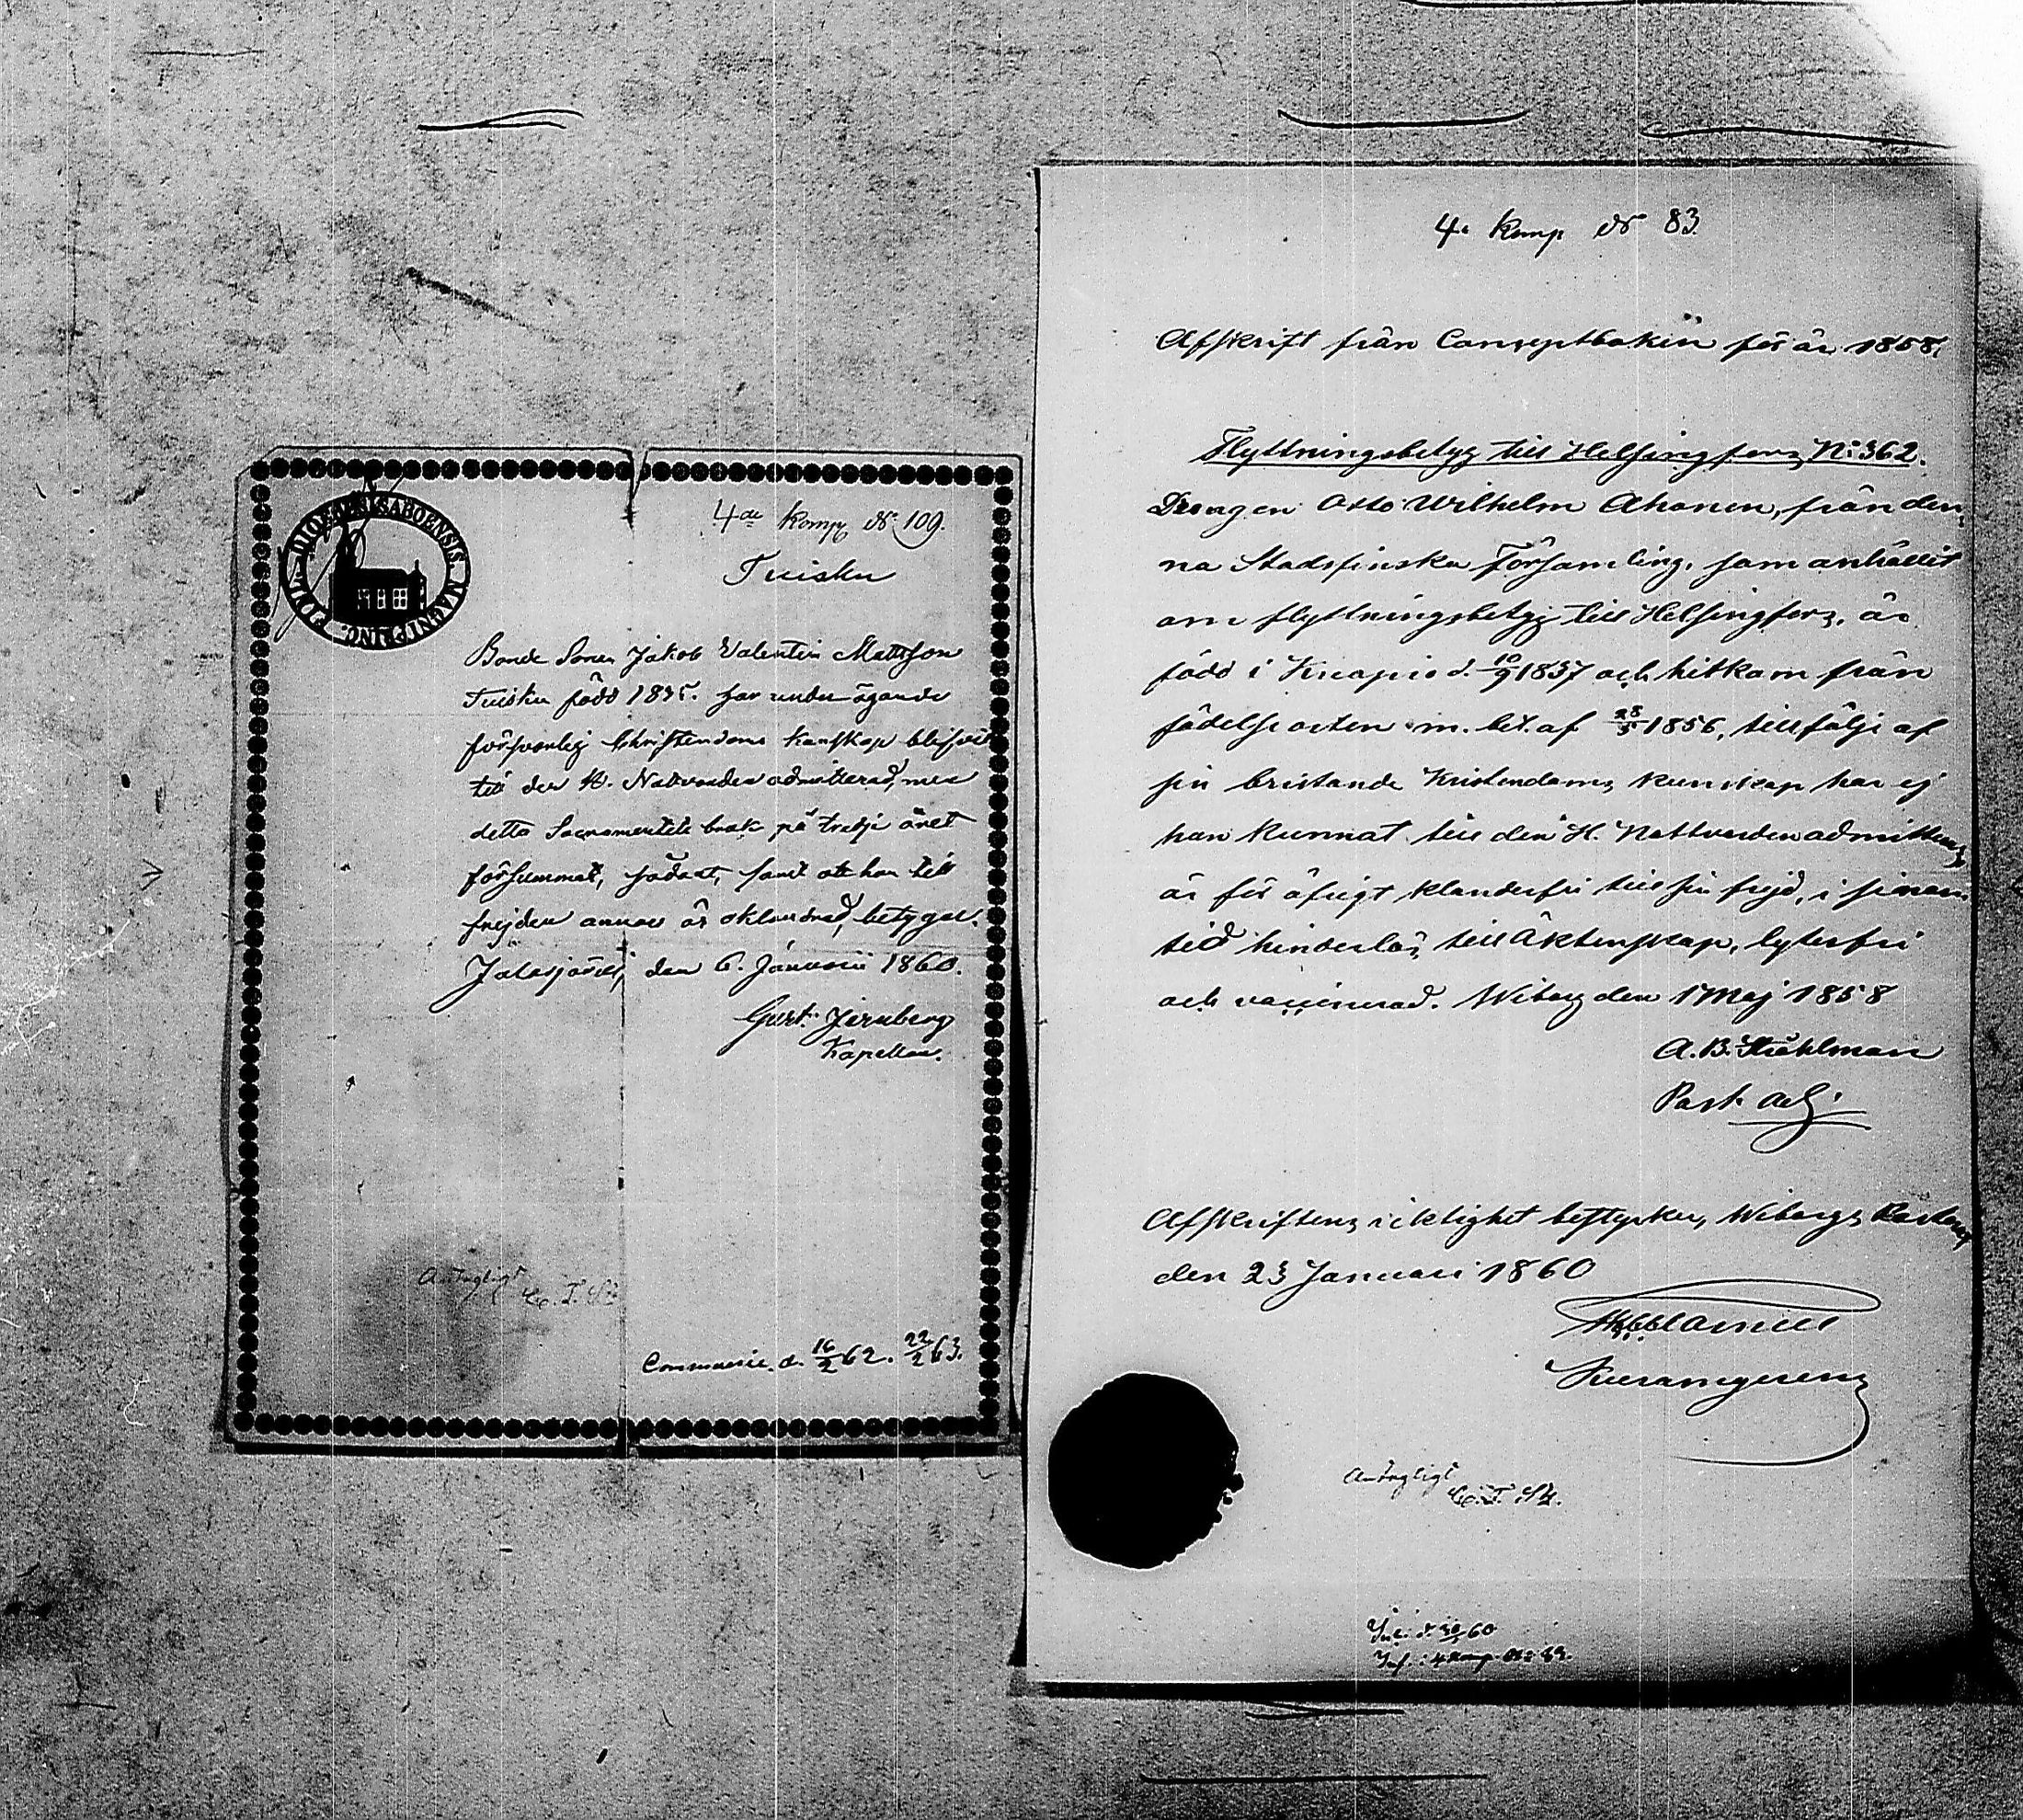 4de Komp No 109.
Tuisku
Bonde Sonen Jakob Valentin Mattsson
Tuisku född 1835. har under ägande
försvarlig Christendoms kunskap blifvit
till den H. Nattvarden admitterad, men
detta Sacramentets bruk på tredje året
försummat, sådant, samt att han till
frejden annars är oklandrad, betygar.
Jalasjärvi, den 6. Januarii 1860.
Gust. Jernberg
Kapellan.
Antagligt
C. T. St.
Communic. d. 16/2 62. 22/2 63.
4e Komp No 83
Afskrift från Conceptboken för år 1858,
Flyttningsbetyg till Helsingfors No 362.
Drengen Otto Wilhelm Ahonen, från den,
na Stadsfinska Församling, som anhållit
om flyttningsbetyg till Helsingfors, är
född i Kuopio d. 10/9 1837 och hitkom från
födelseorten m. bet. af 28/5 1856, till följe af
sin bristande Kristendoms kunskap har ej
han kunnat till den H. Nattvarden admitteras
är för öfrigt klanderfri till sin frejd, i sinom
tid hinderlös till Äktenskap, lytesfri
och vaccinerad. Wiborg den 1 Maj 1858
A. B. Ståhlman
Past. Adj.
Afskriftens riktighet bestyrker, Wiborgs
den 23 Januari 1860
Antagligt
C. T. St.
60